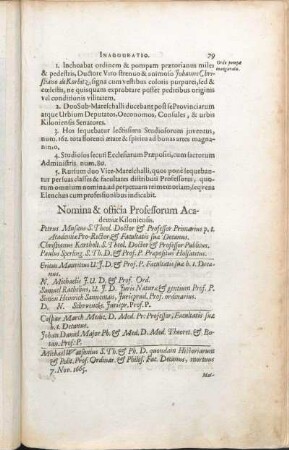 INAUGURATIO. 79
1. Inchoabat ordinem & pompam prætorianus miles
& pedestris, Ductore Viro strenuo & animoso Johanne Chri-
stiano de Kurbitz, signa cum vestibus coloris purpurei, sed &
ecclesiis, ne quisquam exprobrare posset peditibus originis
vel conditionis vilitatem.
Ordo pompæ
inauguralis.
2. Duo Sub-Mareschalli ducebant post se Provinciarum
atque Urbium Deputatos, Oeconomos, Consules, & urbis
Kiloniensis Senatores.
3. Hos sequebatur lectissima Studiosorum juventus,
num. 162. tota florenti ætate & spiritu ad bonas artes magna-
nimo.
4. Studiosos secuti Ecclesiarum Præpositi, cum sacrorum
Administris. num. 80.
5. Rursum duo Vice-Mareschalli, quos pone sequeban-
tur per suas classes & facultates distributi Professores, quo-
rum omnium nomina ad perpetuam rei memoriam, sequens
Elenchus cum professionibus indicabit.
Nomina & officia Professorum Aca-
demiæ Kiloniensis.
Petrus Musæus S. Theol. Doctor & Professor Primarius p. t.
Academiæ Pro-Rector & Facultatis suæ Decanus.
Christianus Kortholt. S. Theol. Doctor & Professor Publicus.
Paulus Sperling. S. Th. D. & Prof. P. Præpositus Holsatus.
Ericus Mauritius U. J. D. & Prof. P. Facultatis suæ h. t. Deca-
nus.
N. Michaelis J. U. D. & Prof. Ord.
Samuel Rachelius, U. J. D. Juris Naturæ & gentium Prof. P.
Simon Henricus Sannemannus, Jurisprud. Prof. ordinarius.
D. N. Schwenck, Jurispr. Prof. P.
Caspar March Medic. D. Med. Pr: Professor, Facultatis suæ
h. t. Decanus.
Johan Daniel Major Ph. & Med. D. Med. Theoret. & Bo-
tan. Prof: P.
Michael Watsonius S. Th. & Ph. D. quondam Historiarum
& Polit. Prof. Ordinar. & Philos. Fac. Decanus, mortuus
7. Nov. 1665.